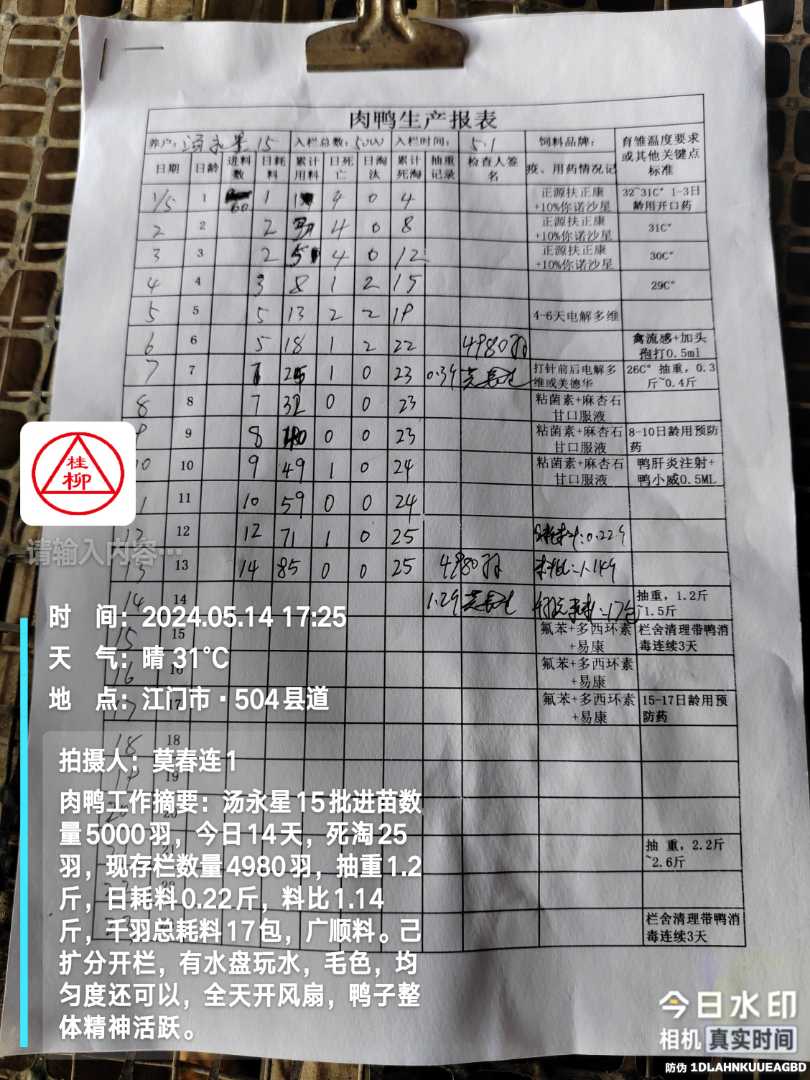 肉鸭生产报表
养户: 汤永星 15 入栏总数: 5000 入栏时间: 5.1 饲料品牌: 育雏温度要求或其他关键点标准
日期 日龄 进料数 日耗料 累计用料 日死亡 日淘汰 累计死淘 抽重记录 检查人签名 疫、用药情况记
1/5 1 60 1 1 4 0 4 正源扶正康+10%你诺沙星 32~31C° 1-3日龄用开口药
2 2 2 4 0 8 正源扶正康+10%你诺沙星 31C°
3 3 2 5 4 0 12 正源扶正康+10%你诺沙星 30C°
4 4 3 8 1 2 15 29C°
5 5 5 13 2 2 19 4-6天电解多维
6 6 5 18 1 2 22 4980羽 禽流感+加头孢打0.5ml
7 7 25 1 0 23 0.39 莫春连 打针前后电解多维或美德华 26C° 抽重,0.3斤~0.4斤
8 8 7 32 0 0 23 粘菌素+麻杏石甘口服液
9 9 8 40 0 0 23 粘菌素+麻杏石甘口服液 8-10日龄用预防药
10 10 9 49 1 0 24 粘菌素+麻杏石甘口服液 鸭肝炎注射+鸭小威0.5ML
11 11 10 59 0 0 24
12 12 12 71 1 0 25 日耗料:0.22斤
13 13 14 85 0 0 25 4980羽 料比:1.14斤
14 14 1.2斤 莫春连 :17包 抽重,1.2斤~1.5斤
15 15 氟苯+多西环素+易康 栏舍清理带鸭消毒连续3天
16 16 氟苯+多西环素+易康
17 17 氟苯+多西环素+易康 15-17日龄用预防药
18 18
19 19
抽 重,2.2斤~2.6斤
栏舍清理带鸭消毒连续3天
桂柳
请输入内容…
时 间: 2024.05.14 17:25
天 气: 晴 31℃
地 点: 江门市·504县道
拍摄人: 莫春连1
肉鸭工作摘要: 汤永星15批进苗数
量5000羽，今日14天，死淘25
羽，现存栏数量4980羽，抽重1.2
斤，日耗料0.22斤，料比1.14
斤，千羽总耗料17包，广顺料。己
扩分开栏，有水盘玩水，毛色，均
匀度还可以，全天开风扇，鸭子整
体精神活跃。
今日水印
相机 真实时间
防伪 1DLAHNKUUEAGBD